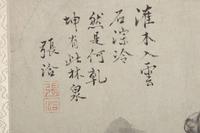 灌木入雲
石淙泠
然是何乾
坤有此林泉
張洽